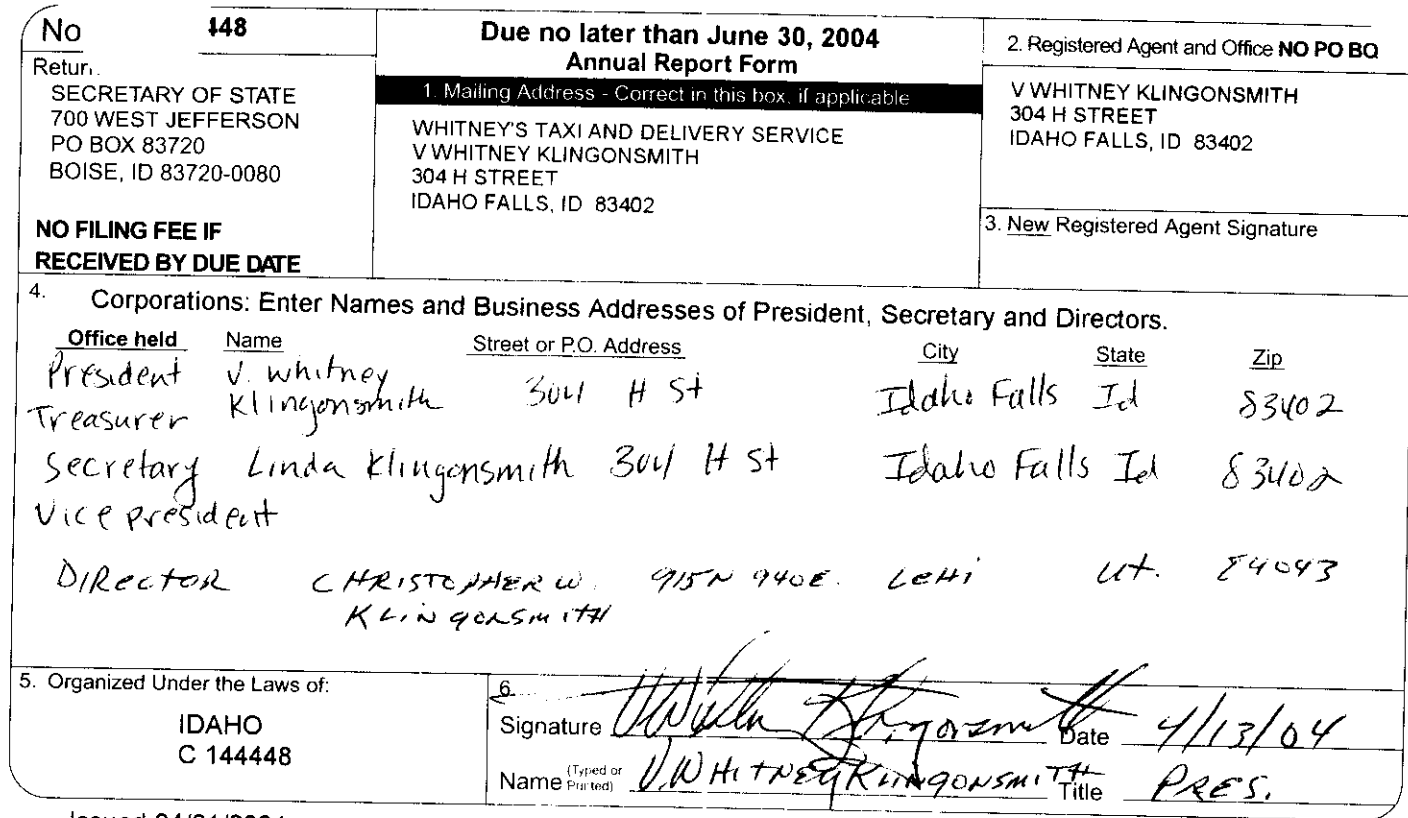 No 448
Return
SECRETARY OF STATE
700 WEST JEFFERSON
PO BOX 83720
BOISE, ID 83720-0080
NO FILING FEE IF
RECEIVED BY DUE DATE
Due no later than June 30, 2004
Annual Report Form
1. Mailing Address - Correct in this box, if applicable
WHITNEY'S TAXI AND DELIVERY SERVICE
V WHITNEY KLINGONSMITH
304 H STREET
IDAHO FALLS, ID 83402
2. Registered Agent and Office NO PO BO
V WHITNEY KLINGONSMITH
304 H STREET
IDAHO FALLS, ID 83402
3. New Registered Agent Signature
4. Corporations: Enter Names and Business Addresses of President, Secretary and Directors.
Office held Name Street or P.O. Address City State Zip
President V. Whitney 304 H St Idaho Falls Id 83402
Treasurer Klingonsmith
Secretary Linda Klingonsmith 304 H St Idaho Falls Id 83402
Vice president
DIRECTOR CHRISTOPHER W. 915N 940E. LEHI Ut. 84043
KLINGONSMITH
5. Organized Under the Laws of:
IDAHO
C 144448
6.
Signature V Whitney Klingonsmith Date 4/13/04
Name (Typed or Printed) V. WHITNEY KLINGONSMITH Title PRES.